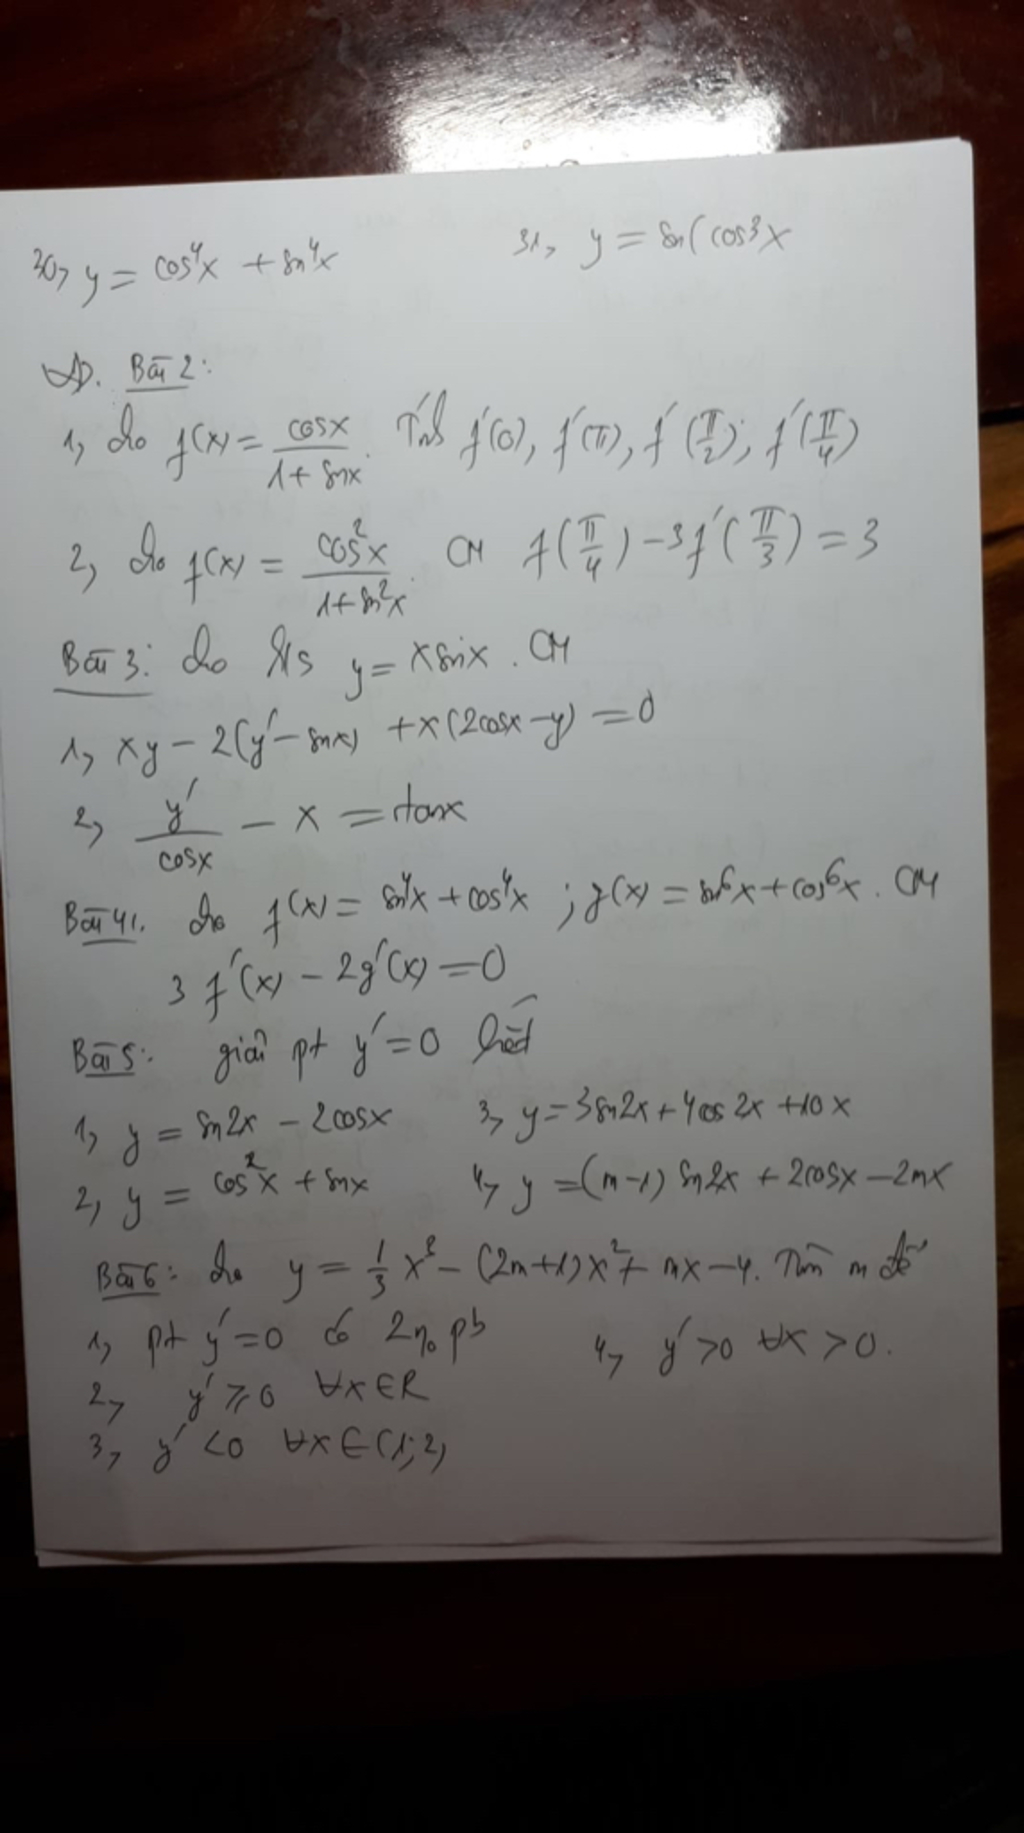 30, y = cos⁴x + sn⁴x
31, y = sn(cos³x
Bài 2:
1, cho f(x) = cosx / 1 + snx. Tính f'(0), f'(π), f'(π/2); f'(π/4)
2, cho f(x) = cos²x / 1 + sn²x. CM f(π/4) - 3f'(π/3) = 3
Bài 3: cho h/s y = xsinx. CM
1, xy - 2(y' - snx) + x(2cosx - y) = 0
2, y' / cosx - x = tanx
Bài 4. cho f(x) = sn⁴x + cos⁴x ; g(x) = sn⁶x + cos⁶x. CM
3f'(x) - 2g'(x) = 0
Bài 5: giải pt y' = 0 biết
1, y = sn2x - 2cosx
3, y = 3sn2x + 4cos2x + 10x
2, y = cos²x + snx
4, y = (m-1)sn2x + 2cosx - 2mx
Bài 6: cho y = 1/3 x³ - (2m+1)x² + mx - 4. Tìm m để
1, pt y' = 0 có 2n₀ pb
4, y' > 0 ∀x > 0.
2, y' ≥ 0 ∀x ∈ R
3, y' < 0 ∀x ∈ (1; 2)